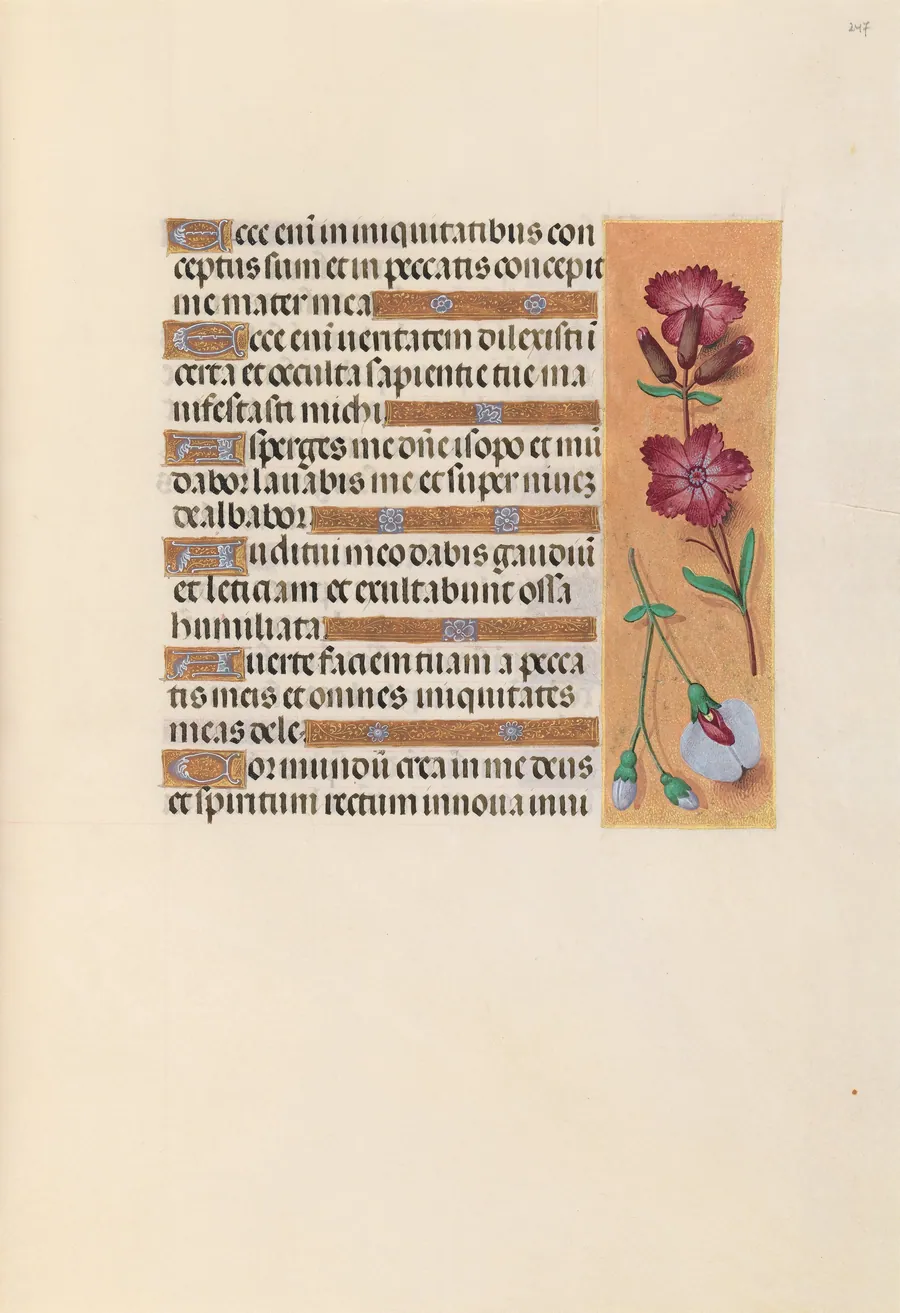 247
Ecce enī in iniquitatibus con
ceptus sum et in peccatis concepit
me mater mea
Ecce enī ueritatem dilexisti ī
certa et occulta sapientie tue ma
nifestasti michi
Asperges me dn̄e isopo et mū
dabor lauabis me et super niueꝫ
dealbabor.
Auditui meo dabis gaudiū
et leticiam et exultabunt ossa
humiliata
Auerte faciem tuam a pecca
tis meis et omnes iniquitates
meas dele.
Cor mundū crea in me deus
et spiritum rectum innoua in ui